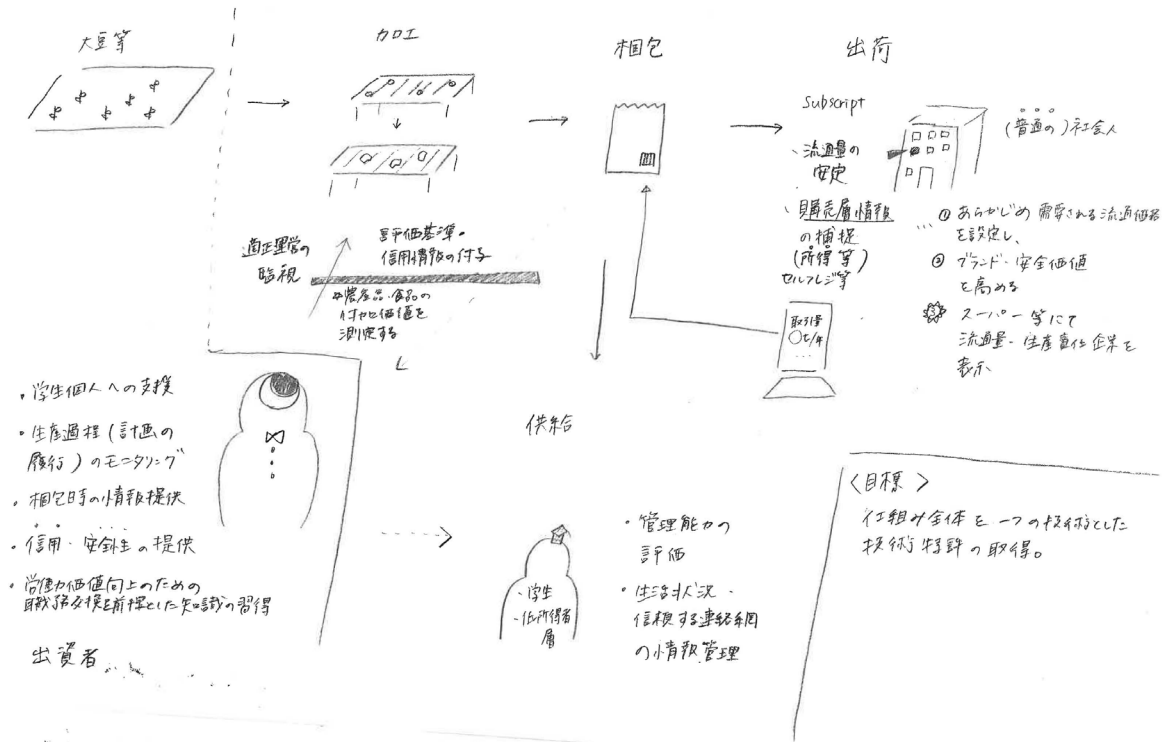 大豆等
加工
梱包
出荷
Subscript
(普通の)社会人
・流通量の
安定
・購売層情報
の捕捉
(所得等)
セルフレジ等
① あらかじめ需要される流通価格
を設定し、
② ブランド・安全価値
を高める
③ スーパー等にて
流通量・生産責任企業を
表示
適正運営の
監視
評価基準・
信用情報の付与
農産品・食品の
付加価値を
測定する
取引量
○t/年
・学生個人への支援
・生産過程(計画の
履行)のモニタリング
・梱包時の情報提供
・信用・安全性の提供
・労働力価値向上のための
職務交換を前提とした知識の習得
出資者
供給
・学生
・低所得者
層
・管理能力の
評価
・生活状況・
信頼する連絡網
の情報管理
<目標>
仕組み全体を一つの技術とした
技術特許の取得。